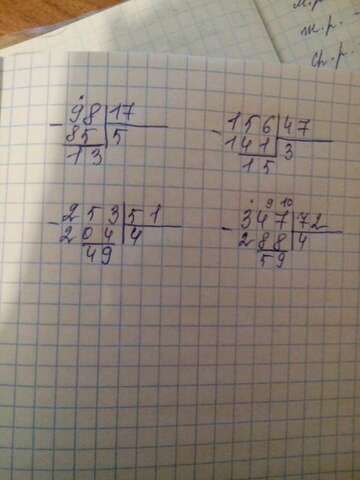 м.р.
ж.р.
ср.р.
98 17
- 85 5
13
156 47
- 141 3
15
253 51
- 204 4
49
9 10
347 72
- 288 4
59